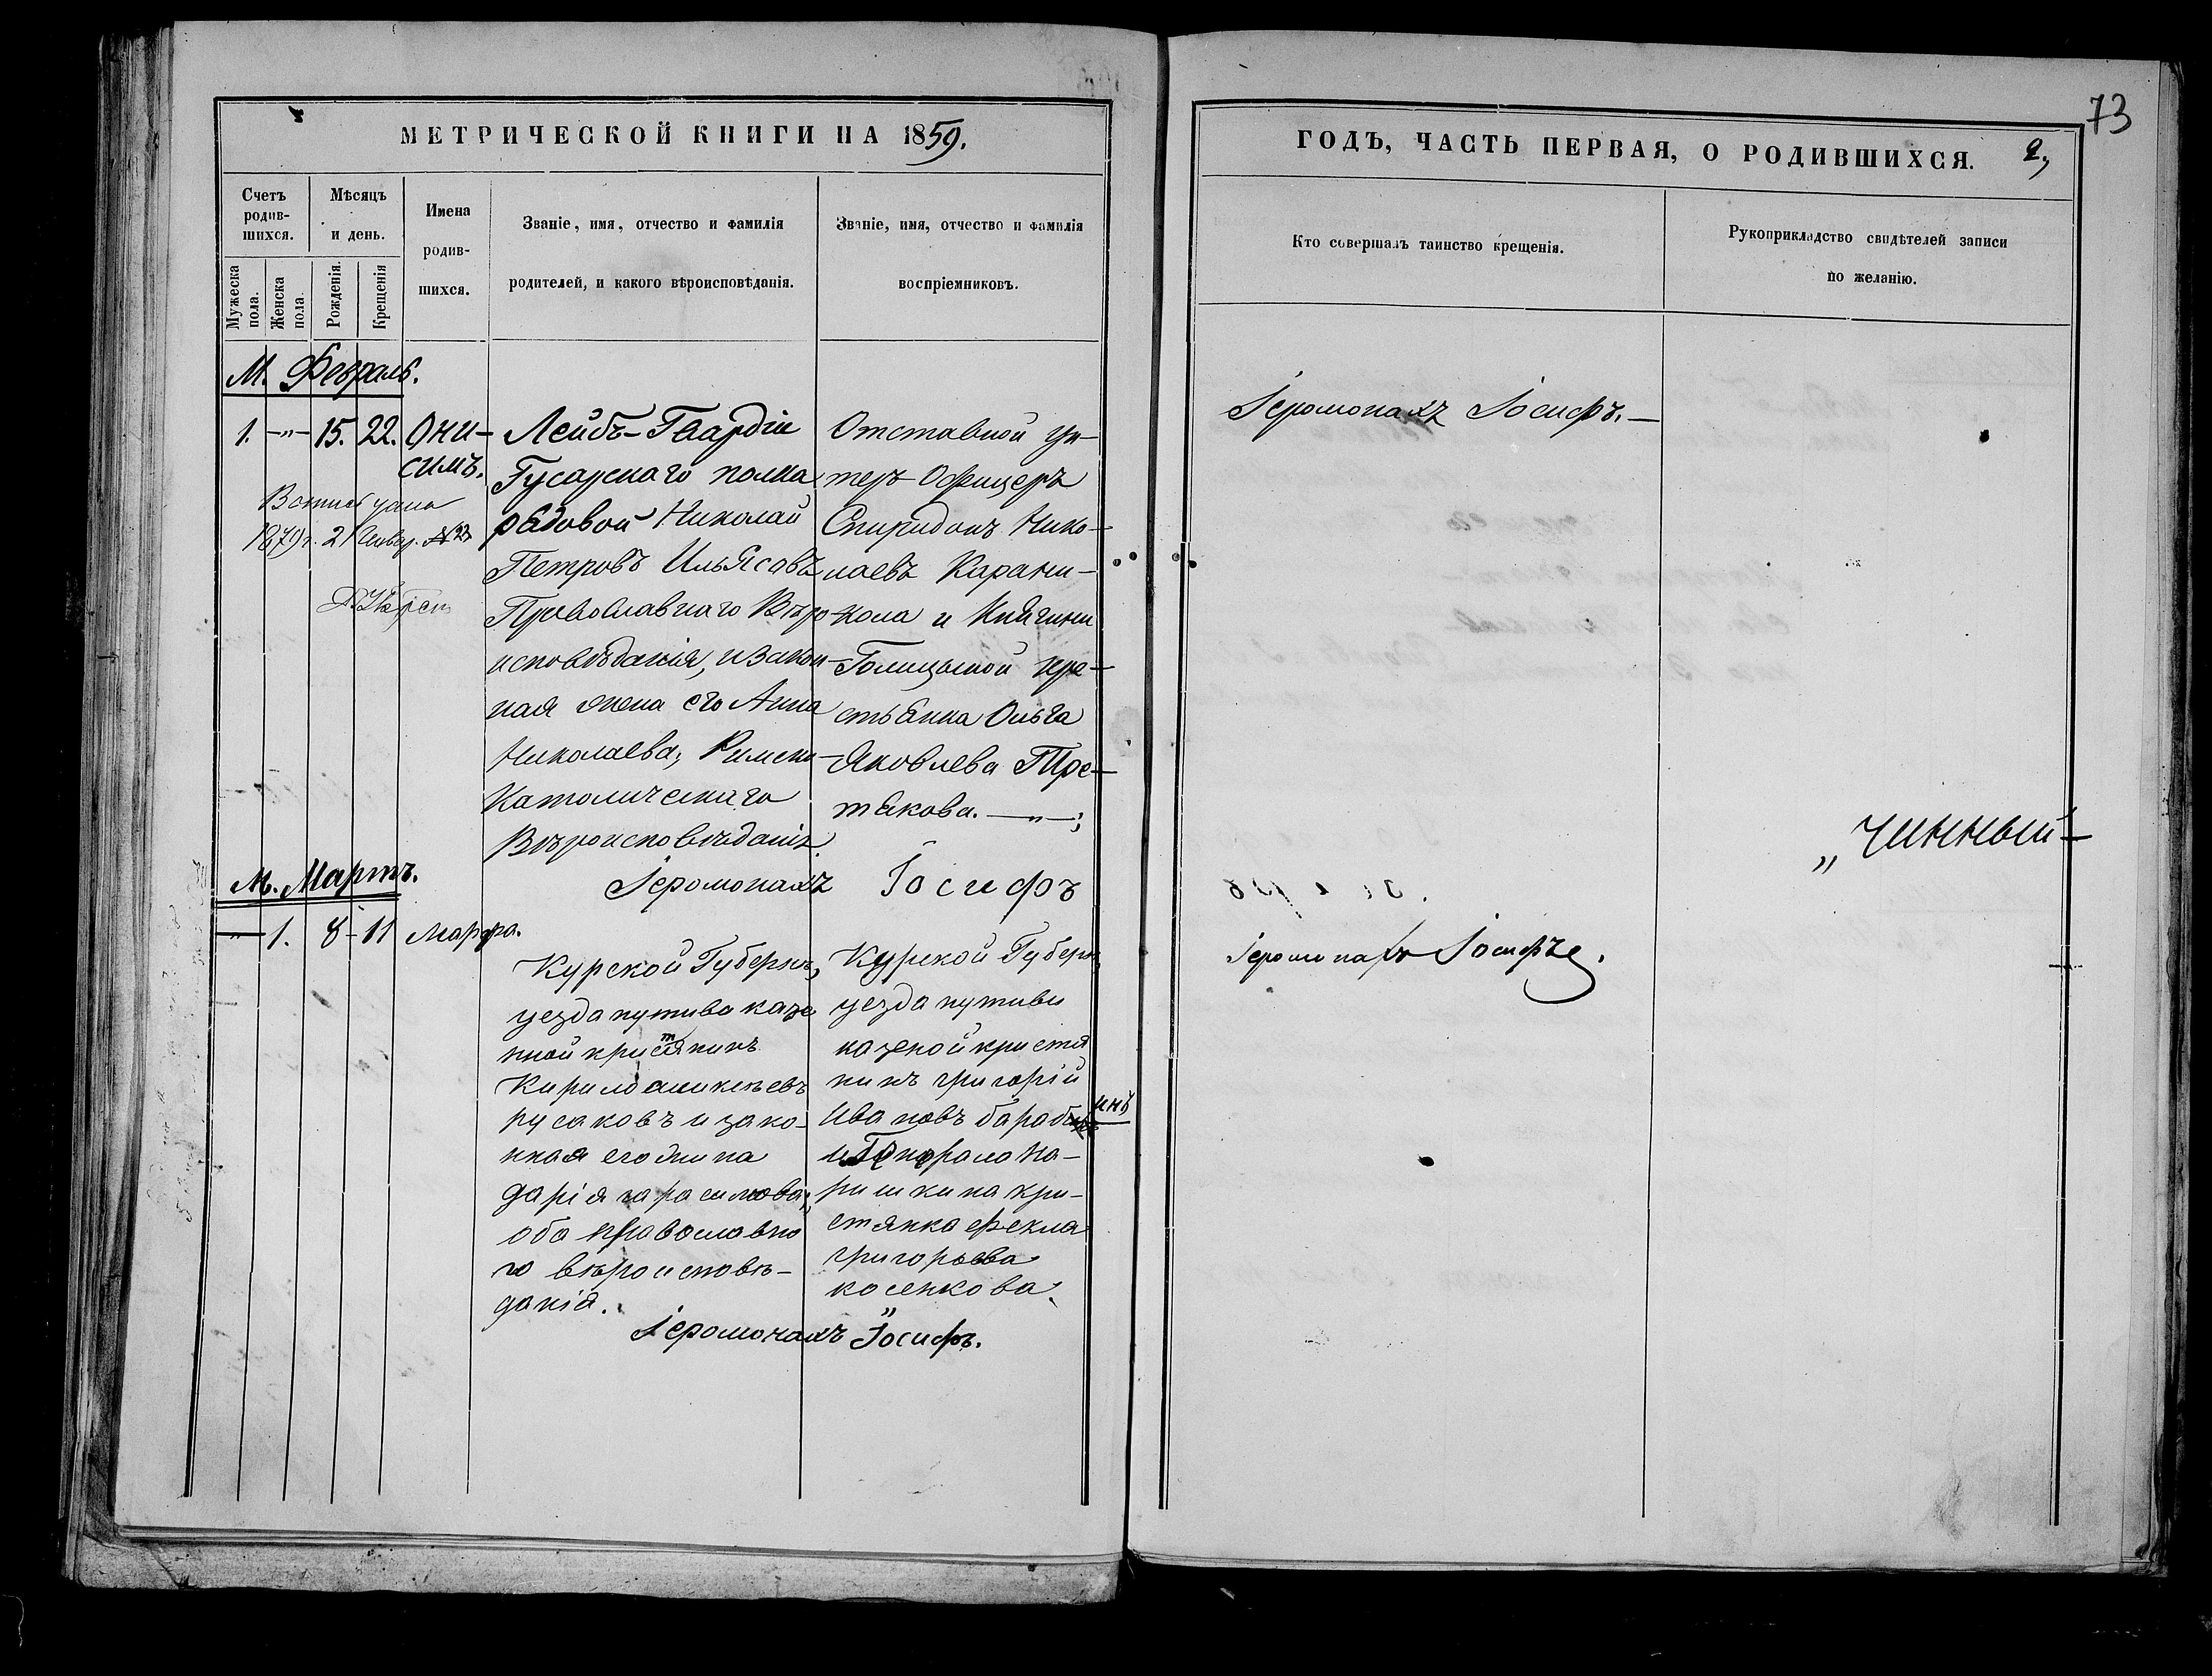 73
МЕТРИЧЕСКОЙ КНИГИ НА 1859.
ГОДЪ, ЧАСТЬ ПЕРВАЯ, О РОДИВШИХСЯ. 2,
Счетъ родив-шихся.
Мѣсяцъ и день.
Имена родив-шихся.
Званіе, имя, отчество и фамилія родителей, и какого вѣроисповѣданія.
Званіе, имя, отчество и фамилія воспріемниковъ.
Кто совершалъ таинство крещенія.
Рукоприкладство свидѣтелей записи по желанію.
Мужеска пола.
Женска пола.
Рожденія.
Крещенія
М. Февраль.
1. —„— 15. 22. Они-
симъ.
1879 г. 21 Январ.
Лейбъ-Гвардіи
Гусарскаго полка
рядовой Николай
Петровъ Ильясовъ
Православнаго Вѣро-
исповѣданія, и закон-
ная жена его Анна
Николаева, Римско-
Католическаго
Вѣроисповѣданія.
Отставной ун-
теръ Офицеръ
Спиридонъ Нико-
лаевъ Карани-
кола и Княгини
Голицыной кре-
стьянка Ольга
Яковлева Тре-
тьякова. —„—;
Іеромонахъ Іосифъ
Іеромонахъ Іосифъ. —
„чинный—
М. Мартъ.
—„— 1. 8 - 11 Марфа.
Курской Губерни,
уезда путива казе
нной кристянинъ
Кирило аникеевъ
русаковъ и зако-
нная его жина
дарія гарасимова,
оба православно
го вѣроисповѣ-
данія.
Курской Губерн,
уезда путивл
казеной кристя
нинъ григорій
Ивановъ бараб инъ
и Генерала На-
ришкина кри-
стянка фекла
григорьева
косенкова.
Іеромонахъ Іосифъ.
Іеромонахъ Іосифъ.